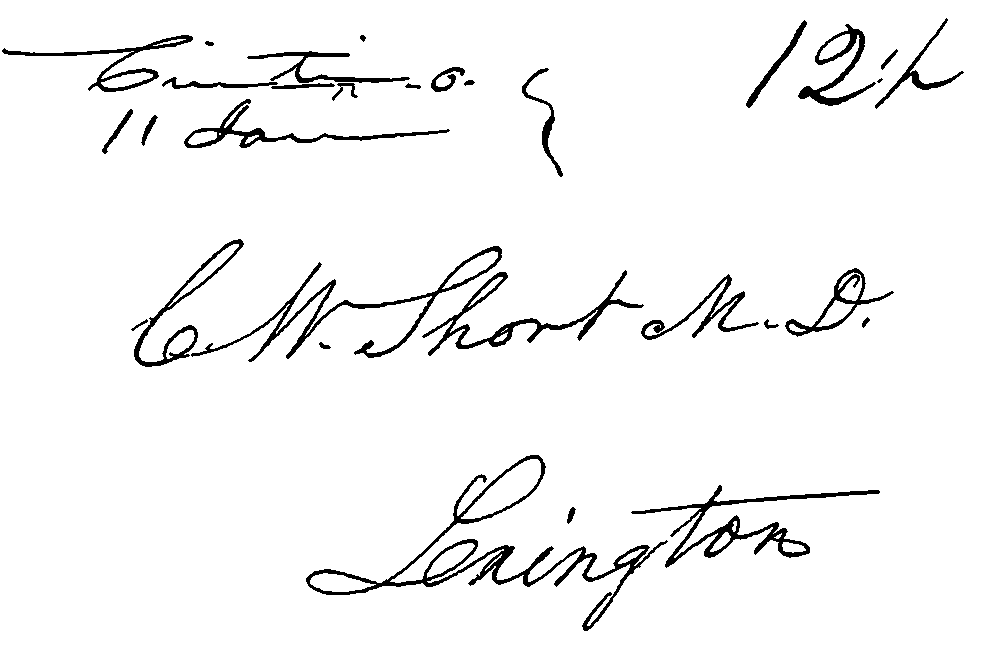 Cinti - o. 12½
11 Jan
C. W. Short M. D.
Lexington